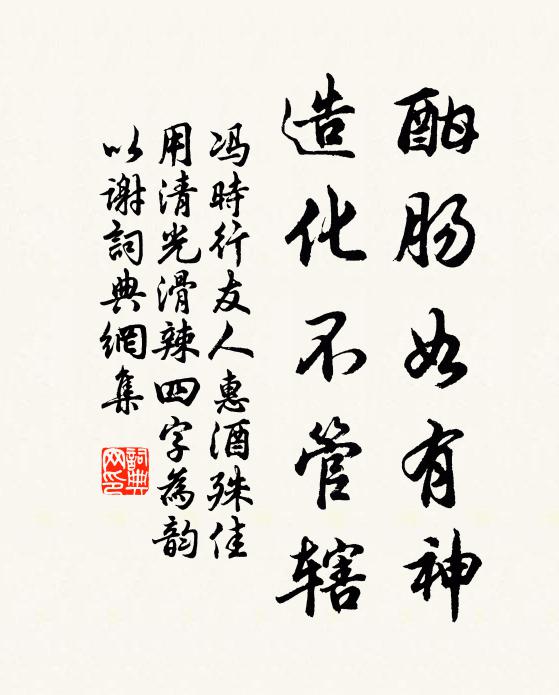 酣肠如有神
造化不管辖
冯時行友人惠酒殊佳
用清光滑辣四字為韵
以谢詞典網集
詞典网印